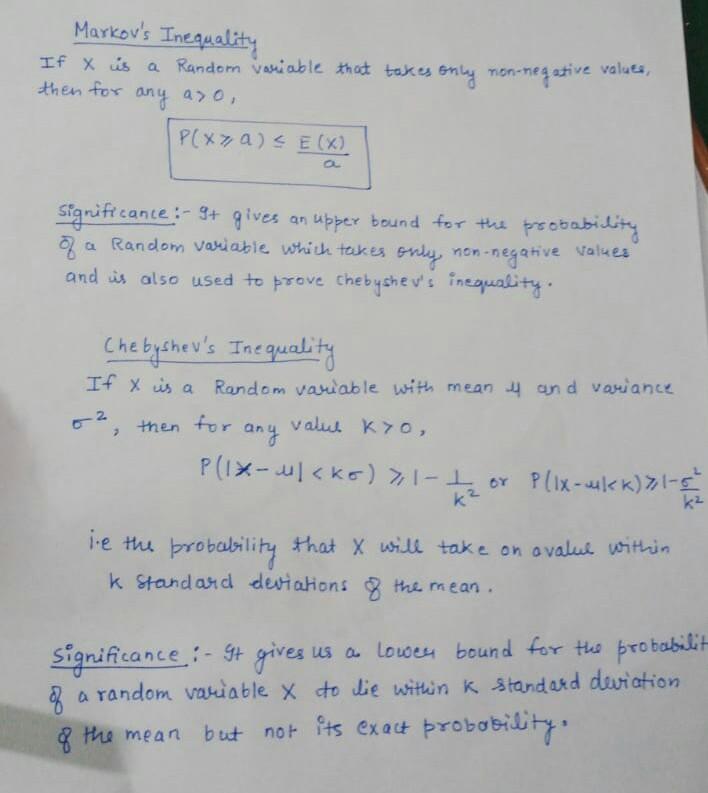 Markov's Inequality
If X is a Random variable that takes only non-negative values,
then for any a>0,
P(X ≥ a) ≤ E(X)/a
Significance :- It gives an upper bound for the probability
of a Random variable which takes only, non-negative values
and is also used to prove Chebyshev's inequality.
Chebyshev's Inequality
If X is a Random variable with mean μ and variance
σ², then for any value K>0,
P(|X-μ| < kσ) ≥ 1 - 1/k² or P(|X-μ|<k) ≥ 1-σ²/k²
i.e the probability that X will take on a value within
k standard deviations of the mean.
Significance :- It gives us a lower bound for the probabilit
of a random variable X to lie within k standard deviation
of the mean but not its exact probability.